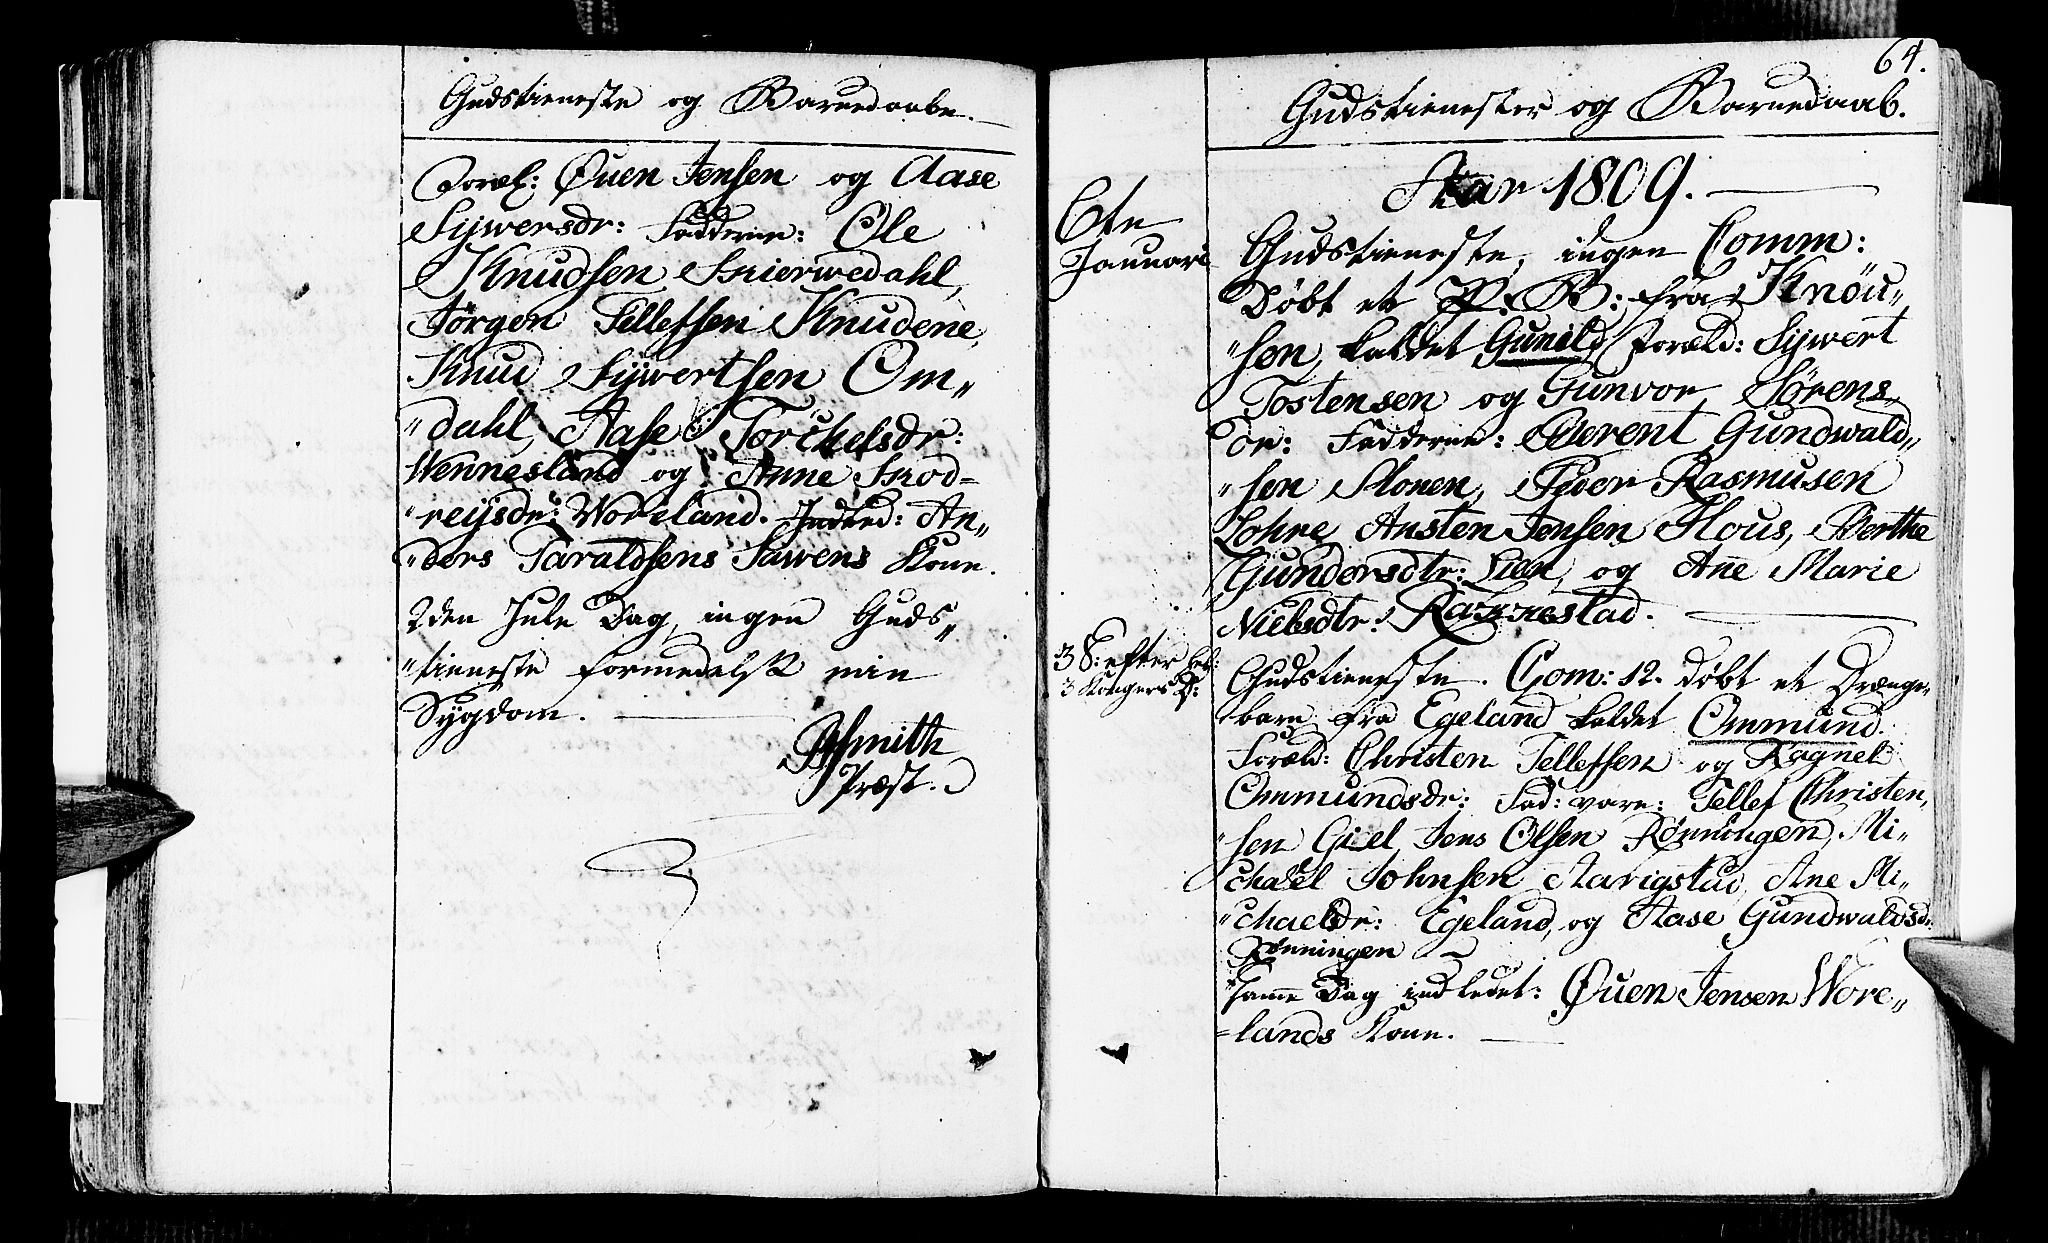 Gudstieneste og Barnedaabe.
Foræl: Øuen Jensen og Aase
Sywersdr: Fadderne: Ole
Knudsen Skierwedahl,
Jørgen Tellefsen Knudene,
Knud Sywertsen Om„
„dahl, Aase Torchelsdr:
Wennesland og Anne Knod=
„reysdr: Woreland. Indled: An„
„ders Taraldsens Sawens Kone.
2den Jule Dag, ingen Guds„
„tieneste formedelst min
Sygdom.
Smith
Præst.
64.
Gudstienester og Barnedaab.
Aar 1809.
6te
Januari
Gudstieneste, ingen Comm:
Døbt et P. B: fra Knøu„
„sen, kaldet Gunild, Foræld: Sywert
Tostensen og Gunvor Sørens„
dr: Fadderne: Berent Gundwald„
„sen Monen, Peder Rasmusen
Lohne, Austen Jensen Hous, Berthe
Gundersdtr: Lien, og Ane Marie
Nielsdtr: Rannestad.
3 S: efter
3 Kongers D:
Gudstieneste. Com: 12. døbt et Drænge„
barn fra Egeland kaldet Ommund.
Foræld: Christen Tellefsen og Ragnel
Ommundsdr: Fad: vare: Tellef Christen„
„sen Jens Olsen Rønningen, Mi„
chael Johnsen Aarigstad, Ane Mi„
„chaelsdr: Egeland, og Aase Gundwaldsd:
Rønningen
Samme Dag indledet: Øuen Jensen Wore„
=lands Kone.